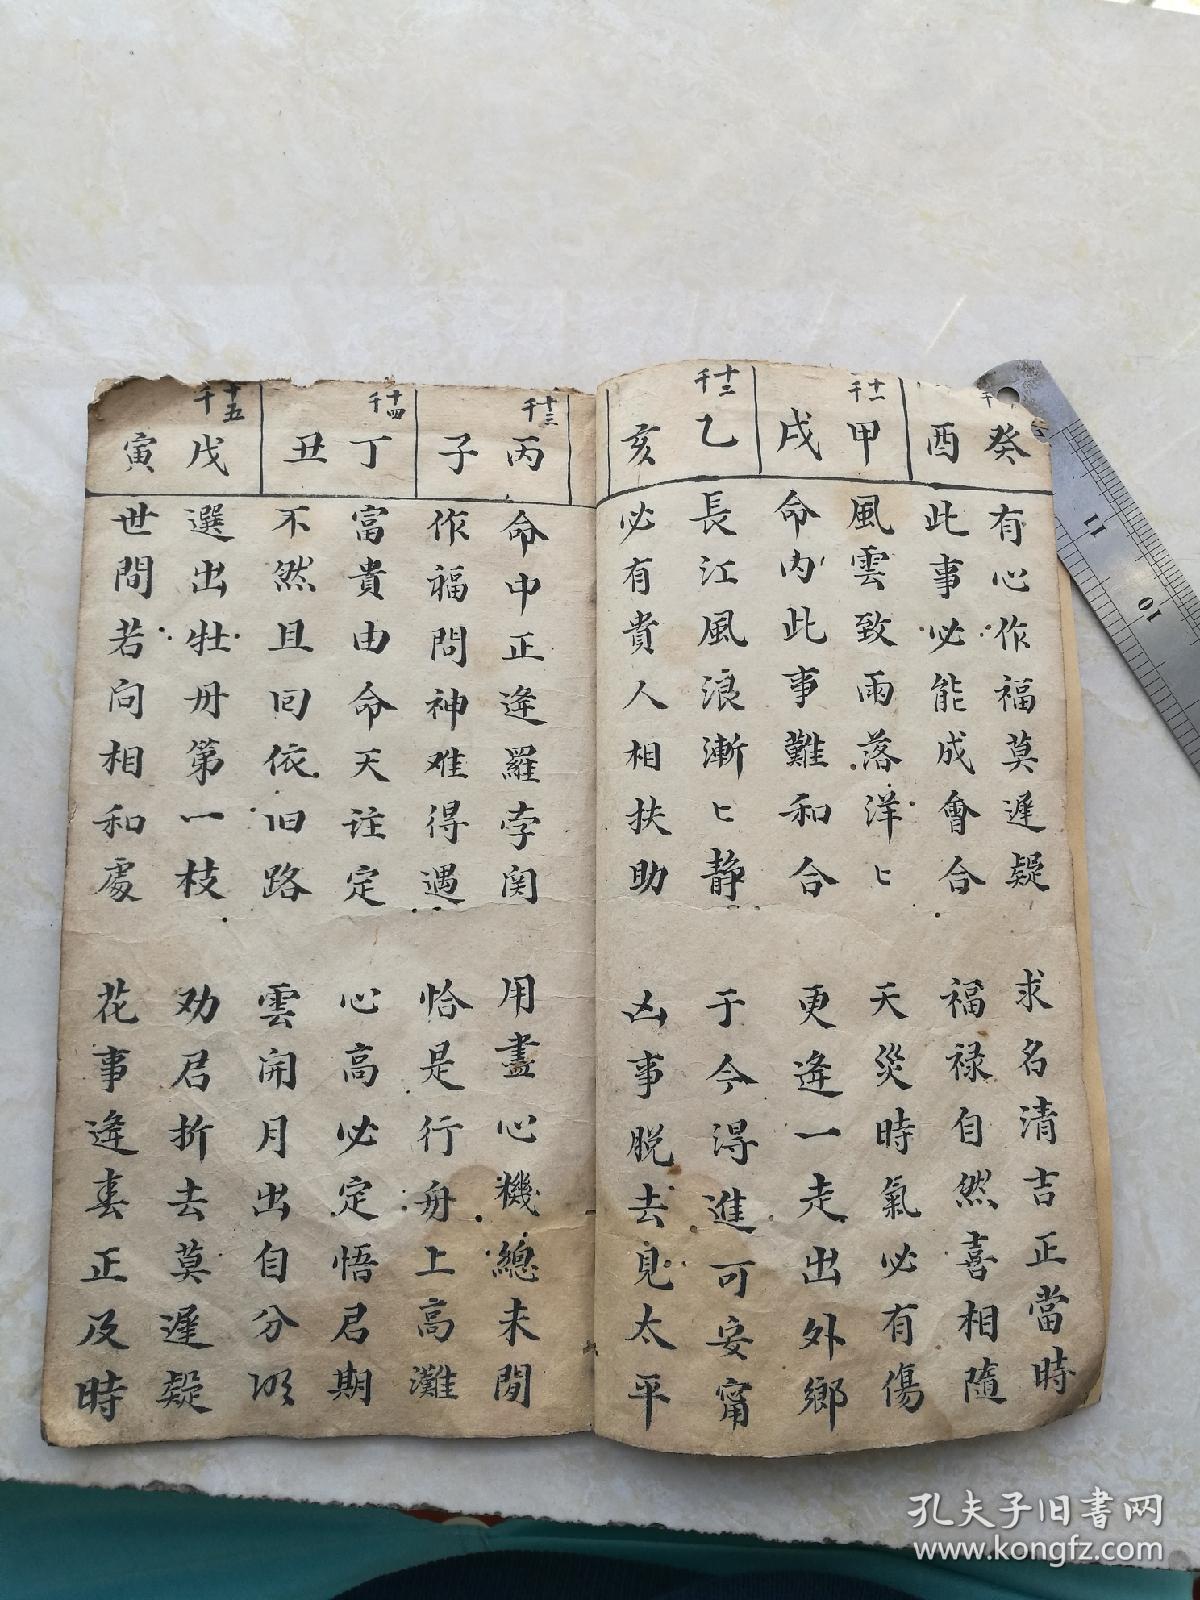 癸酉
有心作福莫遲疑 求名清吉正當時
此事必能成會合 福禄自然喜相隨
十一千
甲戌
風雲致雨落洋〻 天災時氣必有傷
命内此事難和合 更逢一走出外鄉
十二千
乙亥
長江風浪漸〻静 于今得進可安甯
必有貴人相扶助 凶事脱去見太平
十三千
丙子
命中正逢羅孛関 用盡心機總未閒
作福問神难得過 恰是行舟上高灘
十四千
丁丑
富貴由命天註定 心高必定悟君期
不然且回依旧路 雲開月出自分明
十五千
戊寅
選出牡丹第一枝 劝君折去莫遲疑
世間若问相和處 花事逢春正及時
11
10
孔夫子旧书网
www.kongfz.com